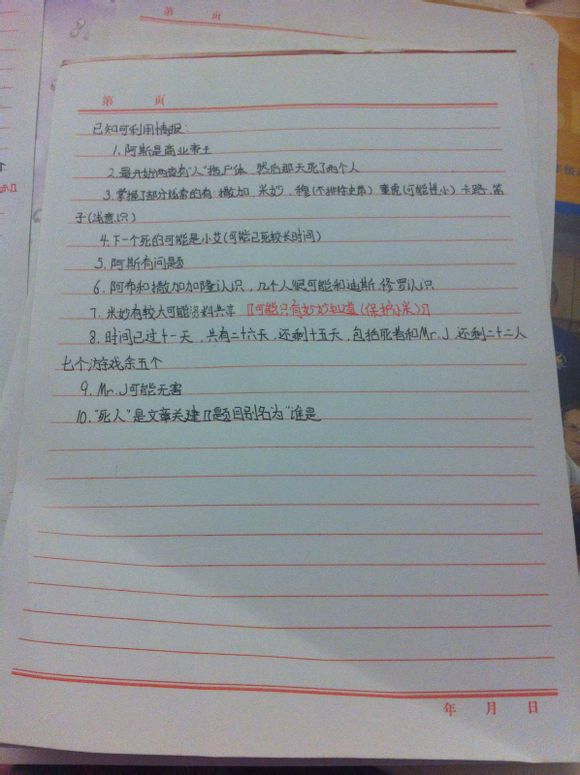 第 页
第 页
已知可利用情报:
1. 阿斯是商业帝王
2. 最开始两边有"人"搭尸体,然后那天死了两个人
3. 掌握了部分线索的有:撒加、米妙、穆(不排除史昂)童虎(可能性小)卡路、笛
子(浅意识)
4. 下一个死的可能是小艾(可能已死较长时间)
5. 阿斯有问题
6. 阿布和撒加加隆认识,几个人眼可能和迪斯、修罗认识
7. 米妙有较大可能资料共享〖可能只有妙妙知道(保护小米)〗
8. 时间已过十一天,共有二十六天,还剩十五天,包括死者和Mr.J,还剩二十二人
七个游戏余五个
9. Mr.J可能无害
10. "死人"是文章关建〖题目别名为"谁是
年 月 日